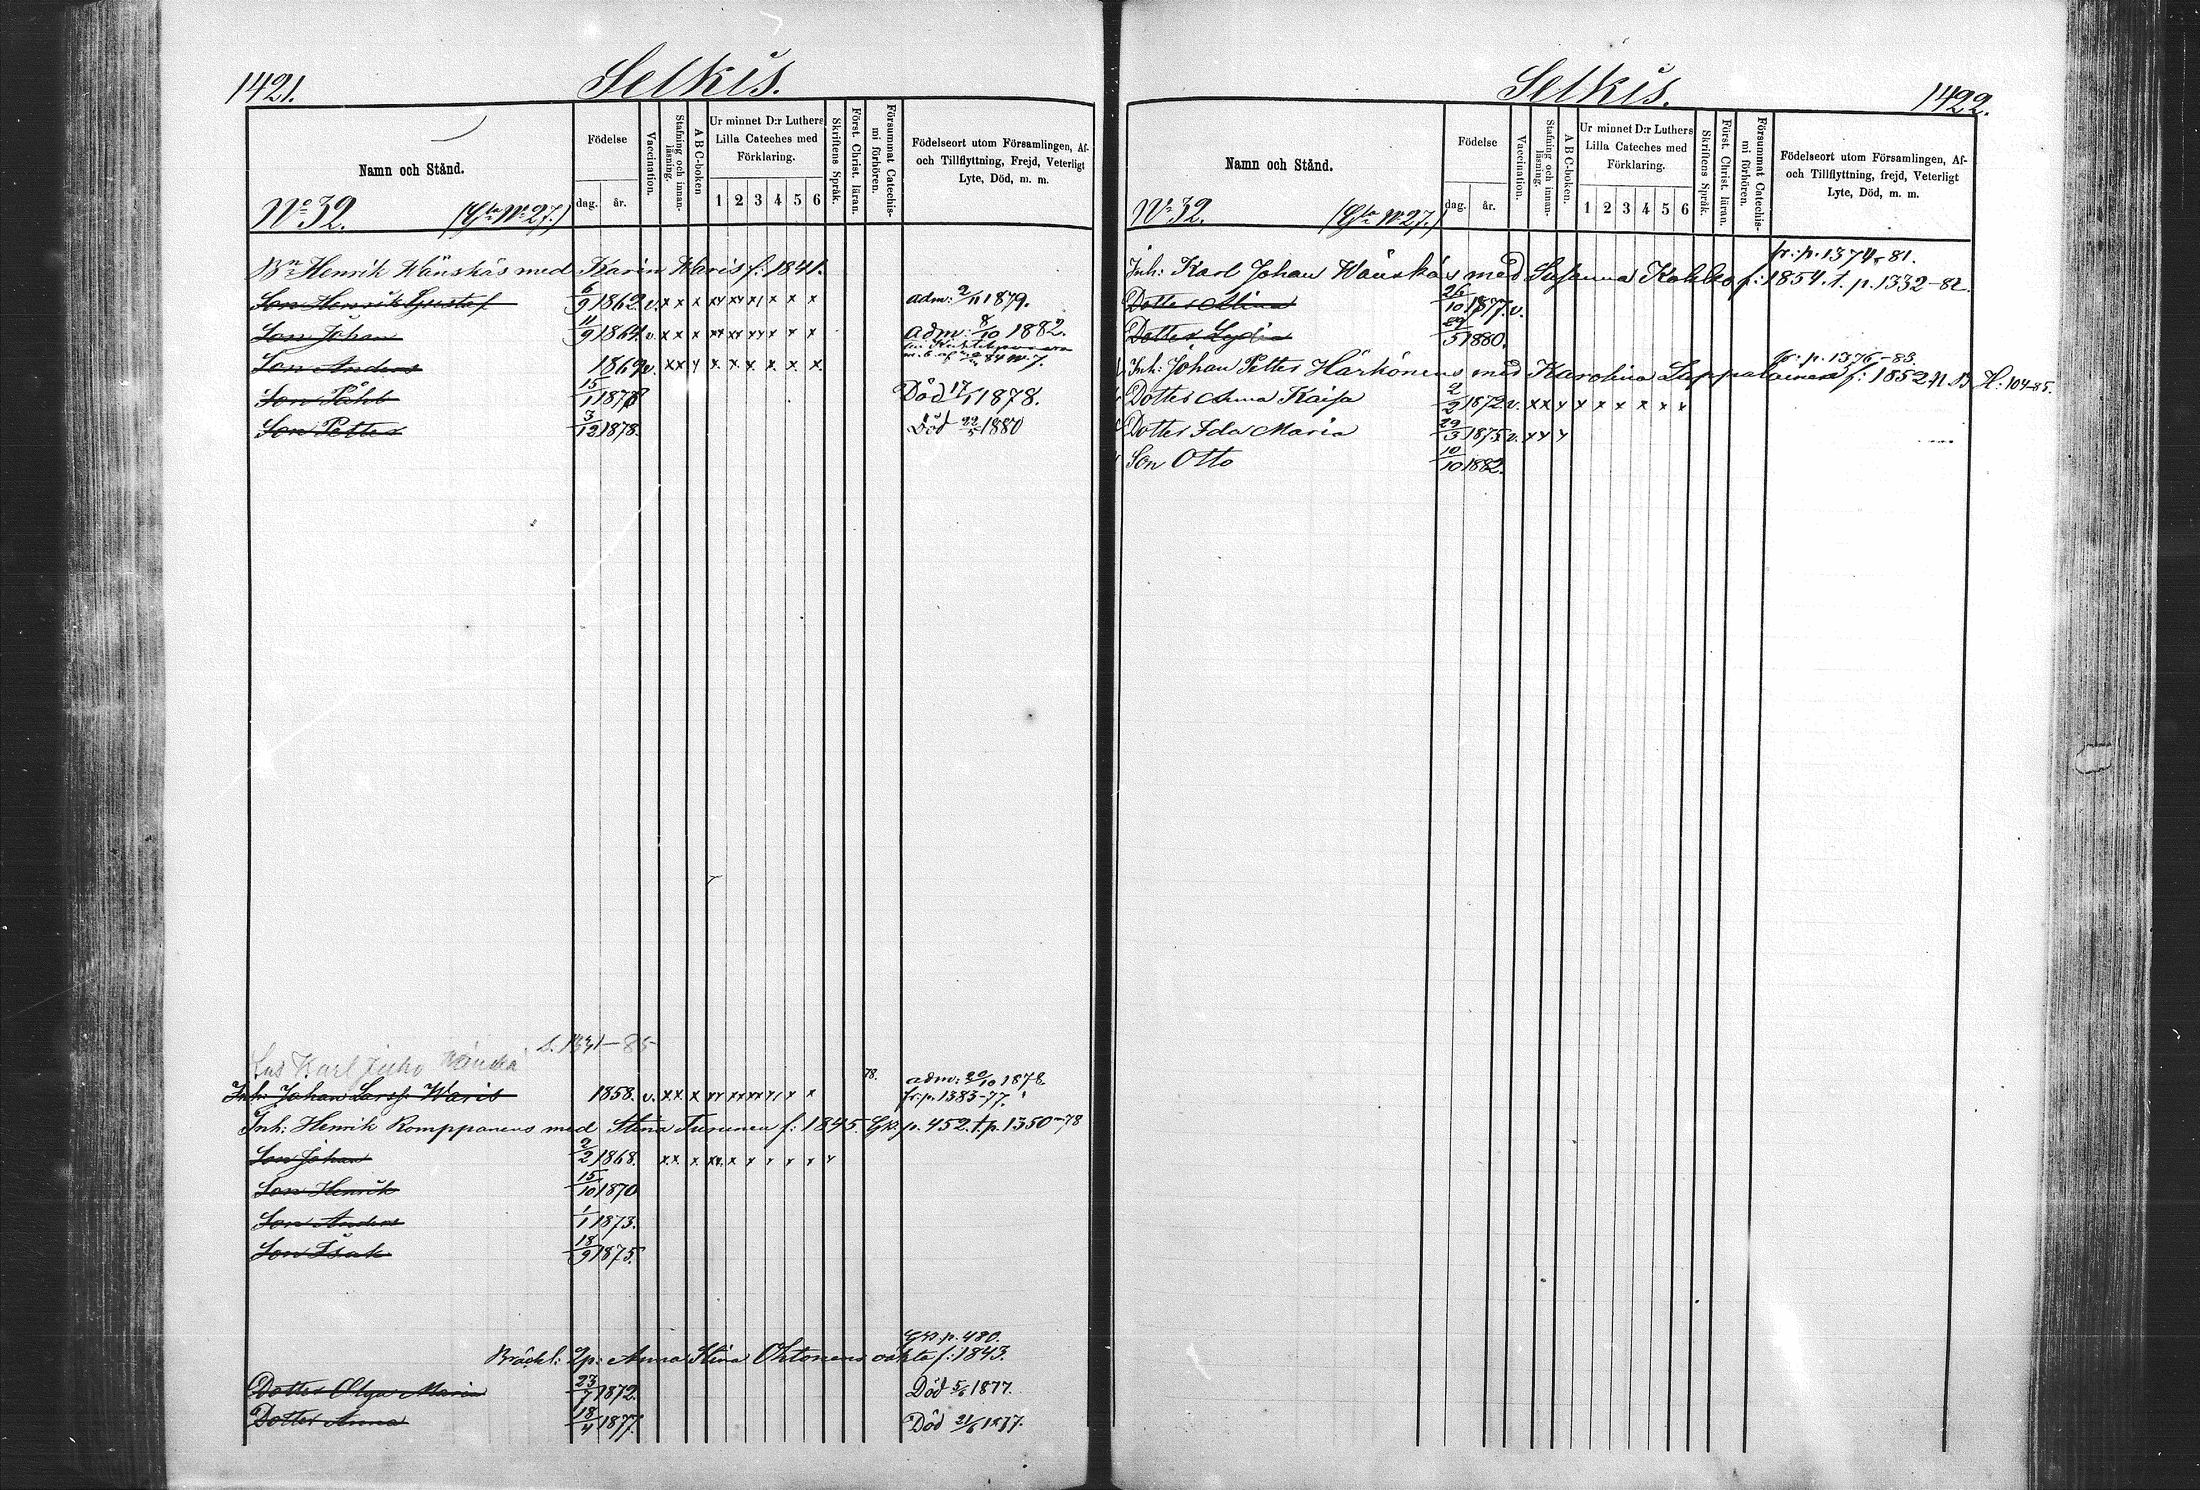 1421.
Selkis.
Namn och Stånd.
Födelse
dag.
år.
Vaccination.
Stafning och innan-
läsning.
A B C-boken
Ur minnet D:r Luthers
Lilla Cateches med
Förklaring.
1 2 3 4 5 6
Skriftens Språk.
Först. Christ. läran.
Försummat Catechis-
mi förhören.
Födelseort utom Församlingen, Af-
och Tillflyttning, Frejd, Veterligt
Lyte, Död, m. m.
No 32. (Gla No 27.)
Bn Henrik Wänskäs med Karin Waris f: 1841.
Son Henrik Gustaf 6/9 1862. v. x x x xx xx x x x x adm: 2/11 1879.
Son Johan 11/9 1864. v. x x x xx xx xx x x x adm: 8/10 1882.
Son Anders 1869. v. xx x x x x x x x x
Son Påhl 15/1 1878 Död 17/1 1878.
Son Petter 3/12 1878. Död 22/5 1880
s. 1331-85
Karl Juho
78. adm: 20/10 1878
Inh: Johan Larss. Waris 1858. v. xx x xx xx xx x x x fr: p. 1383-77.
Inh: Henrik Romppanens med Stina Turunen f: 1845. Gk p. 452. t. p. 1350-78
Son Johan 2/2 1868. xx x xx x x x x x x
Son Henrik 15/10 1870
Son Anders 1/1 1873.
Son Isak 18/9 1875.
Gk. p. 480.
Anna Stina Ohtonens oäkta f: 1843.
Dotter Olga Maria 23/7 1872. Död 5/6 1877.
Dotter Anna 18/4 1877. Död 21/6 1877.
Selkis.
1422.
Namn och Stånd.
Födelse
dag.
år.
Vaccination.
Stafning och innan-
läsning.
A B C-boken.
Ur minnet D:r Luthers
Lilla Cateches med
Förklaring.
1 2 3 4 5 6
Skriftens Språk.
Först. Christ. läran.
Försummat Catechis-
mi förhören.
Födelseort utom Församlingen, Af-
och Tillflyttning, frejd, Veterligt
Lyte, Död, m. m.
No 32. (Gla No 27.)
fr: p. 1374-81.
Inh: Karl Johan Wänskäs med Susanna Kokko f: 1854. t. p. 1332-82.
Dotter Mina 26/10 1877. v.
Dotter Lydia 29/5 1880.
fr: p. 1376-83
Inh: Johan Petter Härkönens med Karolina Leppälainen f: 1852 H. 104-85.
Dotter Anna Kaisa 2/2 1872. v. xx x x x x x x x
Dotter Ida Maria 29/3 1875. v. x x x
Son Otto 10/10 1882.